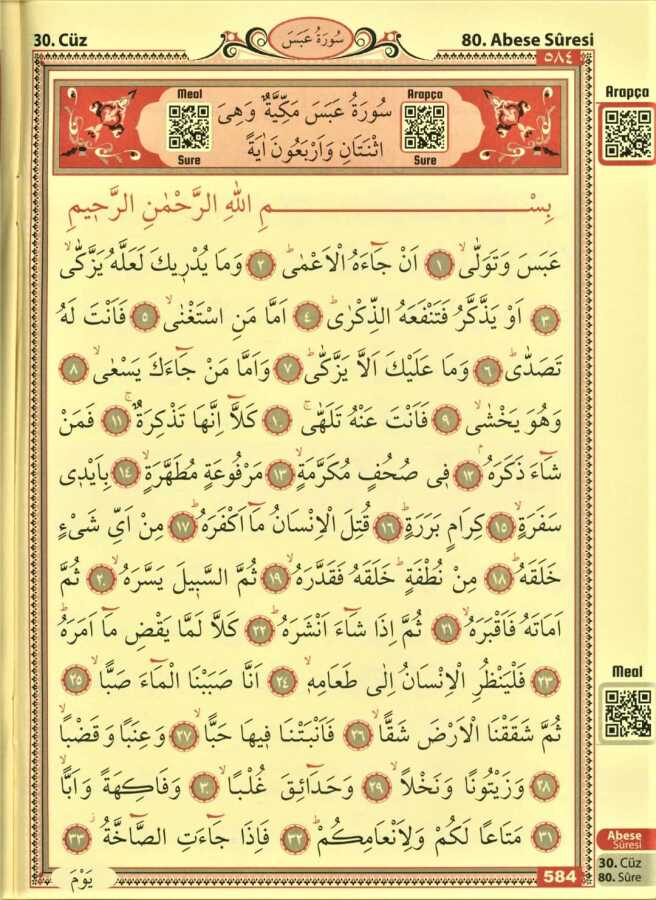 30. Cüz
سُورَةُ عَبَسَ
80. Abese Sûresi
٥٨٤
Meal
Sure
سُورَةُ عَبَسَ مَكِّيَّةٌ وَهِىَ
اثْنَتَانِ وَاَرْبَعُونَ اٰيَةً
Arapça
Sure
Arapça
بِسْــــــــــــــــــمِ اللّٰهِ الرَّحْمٰنِ الرَّحٖيمِ
عَبَسَ وَتَوَلّٰىۙ ﴿١﴾ اَنْ جَٓاءَهُ الْاَعْمٰىؕ ﴿٢﴾ وَمَا يُدْرٖيكَ لَعَلَّهُ يَزَّكّٰىۙ
﴿٣﴾ اَوْ يَذَّكَّرُ فَتَنْفَعَهُ الذِّكْرٰىؕ ﴿٤﴾ اَمَّا مَنِ اسْتَغْنٰىۙ ﴿٥﴾ فَاَنْتَ لَهُ
تَصَدّٰىؕ ﴿٦﴾ وَمَا عَلَيْكَ اَلَّا يَزَّكّٰىؕ ﴿٧﴾ وَاَمَّا مَنْ جَٓاءَكَ يَسْعٰىۙ ﴿٨﴾
وَهُوَ يَخْشٰىۙ ﴿٩﴾ فَاَنْتَ عَنْهُ تَلَهّٰىۚ ﴿١٠﴾ كَلَّٓا اِنَّهَا تَذْكِرَةٌۚ ﴿١١﴾ فَمَنْ
شَٓاءَ ذَكَرَهُۢ ﴿١٢﴾ فٖى صُحُفٍ مُكَرَّمَةٍۙ ﴿١٣﴾ مَرْفُوعَةٍ مُطَهَّرَةٍۙ ﴿١٤﴾ بِاَيْدٖى
سَفَرَةٍۙ ﴿١٥﴾ كِرَامٍ بَرَرَةٍؕ ﴿١٦﴾ قُتِلَ الْاِنْسَانُ مَٓا اَكْفَرَهُؕ ﴿١٧﴾ مِنْ اَىِّ شَىْءٍ
خَلَقَهُؕ ﴿١٨﴾ مِنْ نُطْفَةٍؕ خَلَقَهُ فَقَدَّرَهُۙ ﴿١٩﴾ ثُمَّ السَّبٖيلَ يَسَّرَهُۙ ﴿٢٠﴾ ثُمَّ
اَمَاتَهُ فَاَقْبَرَهُۙ ﴿٢١﴾ ثُمَّ اِذَا شَٓاءَ اَنْشَرَهُؕ ﴿٢٢﴾ كَلَّا لَمَّا يَقْضِ مَٓا اَمَرَهُؕ
﴿٢٣﴾ فَلْيَنْظُرِ الْاِنْسَانُ اِلٰى طَعَامِهٖۙ ﴿٢٤﴾ اَنَّا صَبَبْنَا الْمَٓاءَ صَبًّاۙ ﴿٢٥﴾
ثُمَّ شَقَقْنَا الْاَرْضَ شَقًّاۙ ﴿٢٦﴾ فَاَنْبَتْنَا فٖيهَا حَبًّاۙ ﴿٢٧﴾ وَعِنَبًا وَقَضْبًاۙ
﴿٢٨﴾ وَزَيْتُونًا وَنَخْلًاۙ ﴿٢٩﴾ وَحَدَٓائِقَ غُلْبًاۙ ﴿٣٠﴾ وَفَاكِهَةً وَاَبًّاۙ
﴿٣١﴾ مَتَاعًا لَكُمْ وَلِاَنْعَامِكُمْؕ ﴿٣٢﴾ فَاِذَا جَٓاءَتِ الصَّٓاخَّةُؗ ﴿٣٣﴾
Meal
Abese
Sûresi
30. Cüz
80. Sûre
584
يَوْمَ